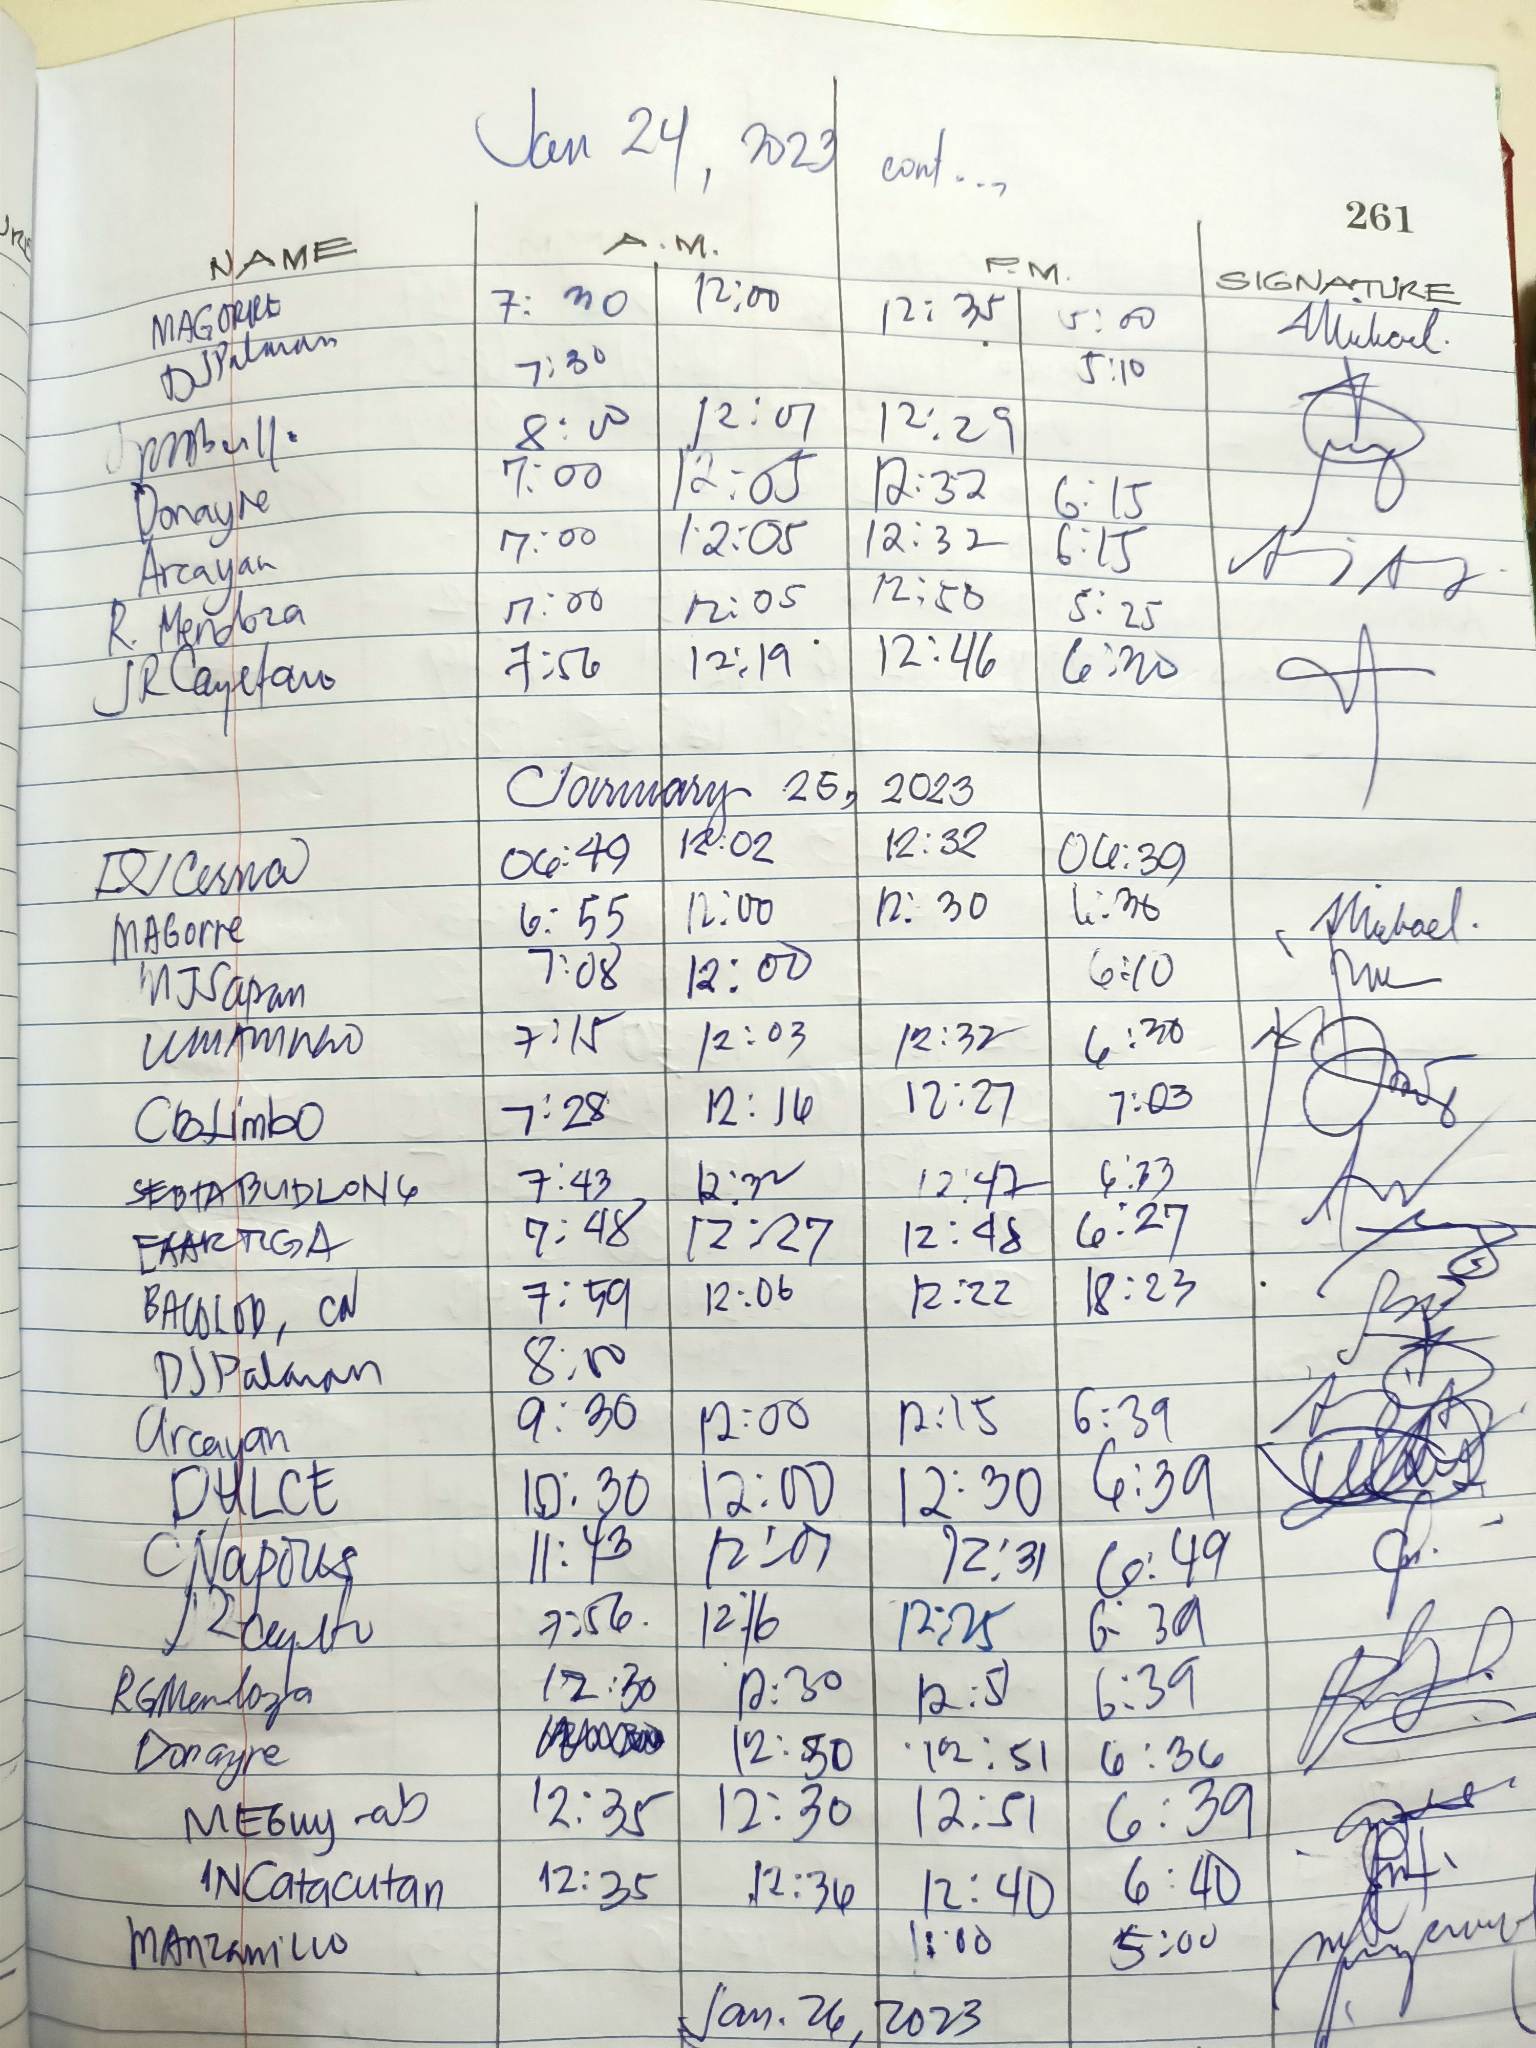 Jan 24, 2023 cont...,
261
NAME A.M. P.M. SIGNATURE
MAGORRE 7:30 12:00 12:35 5:00 AMichael.
DJPalaran 7:30 5:10
8:00 12:01 12:29
Donayre 7:00 12:05 12:32 6:15
Arcayan 7:00 12:05 12:32 6:15
R. Mendoza 7:00 12:05 12:50 5:25
JRCayetano 7:56 12:19 12:46 6:30
January 25, 2023
06:49 12:02 12:32 06:39
MAGorre 6:55 12:00 12:30 6:36 AMichael.
MJSapan 7:08 12:00 6:10
7:15 12:03 12:32 6:30
CBLimbo 7:28 12:16 12:27 7:03
SEBTABUDLONG 7:43 12:32 12:47 6:33
EAARTIGA 7:48 12:27 12:48 6:27
BACOLOD, CN 7:59 12:06 12:22 18:23
DJPalaran 8:00
Arcayan 9:30 12:00 12:15 6:39
DULCE 10:30 12:00 12:30 6:39
CNapolis 11:43 12:01 12:31 6:49
7:56. 12:16 12:25 6:39
RGMendoza 12:30 12:30 12:51 6:39
Donayre 12:30 12:51 6:36
MEGuy-ab 12:35 12:30 12:51 6:39
INCatacutan 12:35 12:36 12:40 6:40
MAnzanillo 1:00 5:00
Jan. 26, 2023